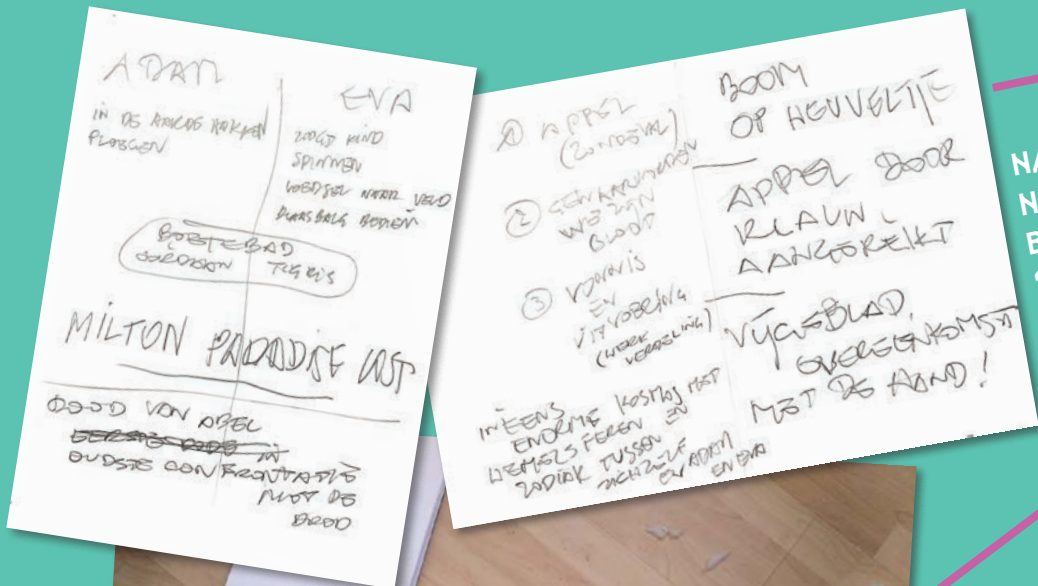 ADAM
EVA
IN DE AARDE HAKKEN
PLOEGEN
ZOOGT KIND
SPINNEN
VOEDSEL NAAR VELD
BLAASBALG BEDIENT
BOETEBAD
JORDAAN TIGRIS
MILTON PARADISE LOST
DOOD VAN ABEL
IN
OUDSTE CONFRONTATIE
MET DE
DOOD
① APPEL
(ZONDEVAL)
② GEWAARWORDEN
WE ZIJN
BLOOT
③ VONNIS
EN
UITVOERING
(WERK
VERDELING)
INEENS
ENORME KOSMOS MET
HEMELSFEREN EN
ZODIAK TUSSEN
ZICHZELF
EN ADAM
EN EVA
BOOM
OP HEUVELTJE
APPEL DOOR
KLAUW
AANGEREIKT
VIJGEBLAD,
OVEREENKOMST
MET DE HAND!